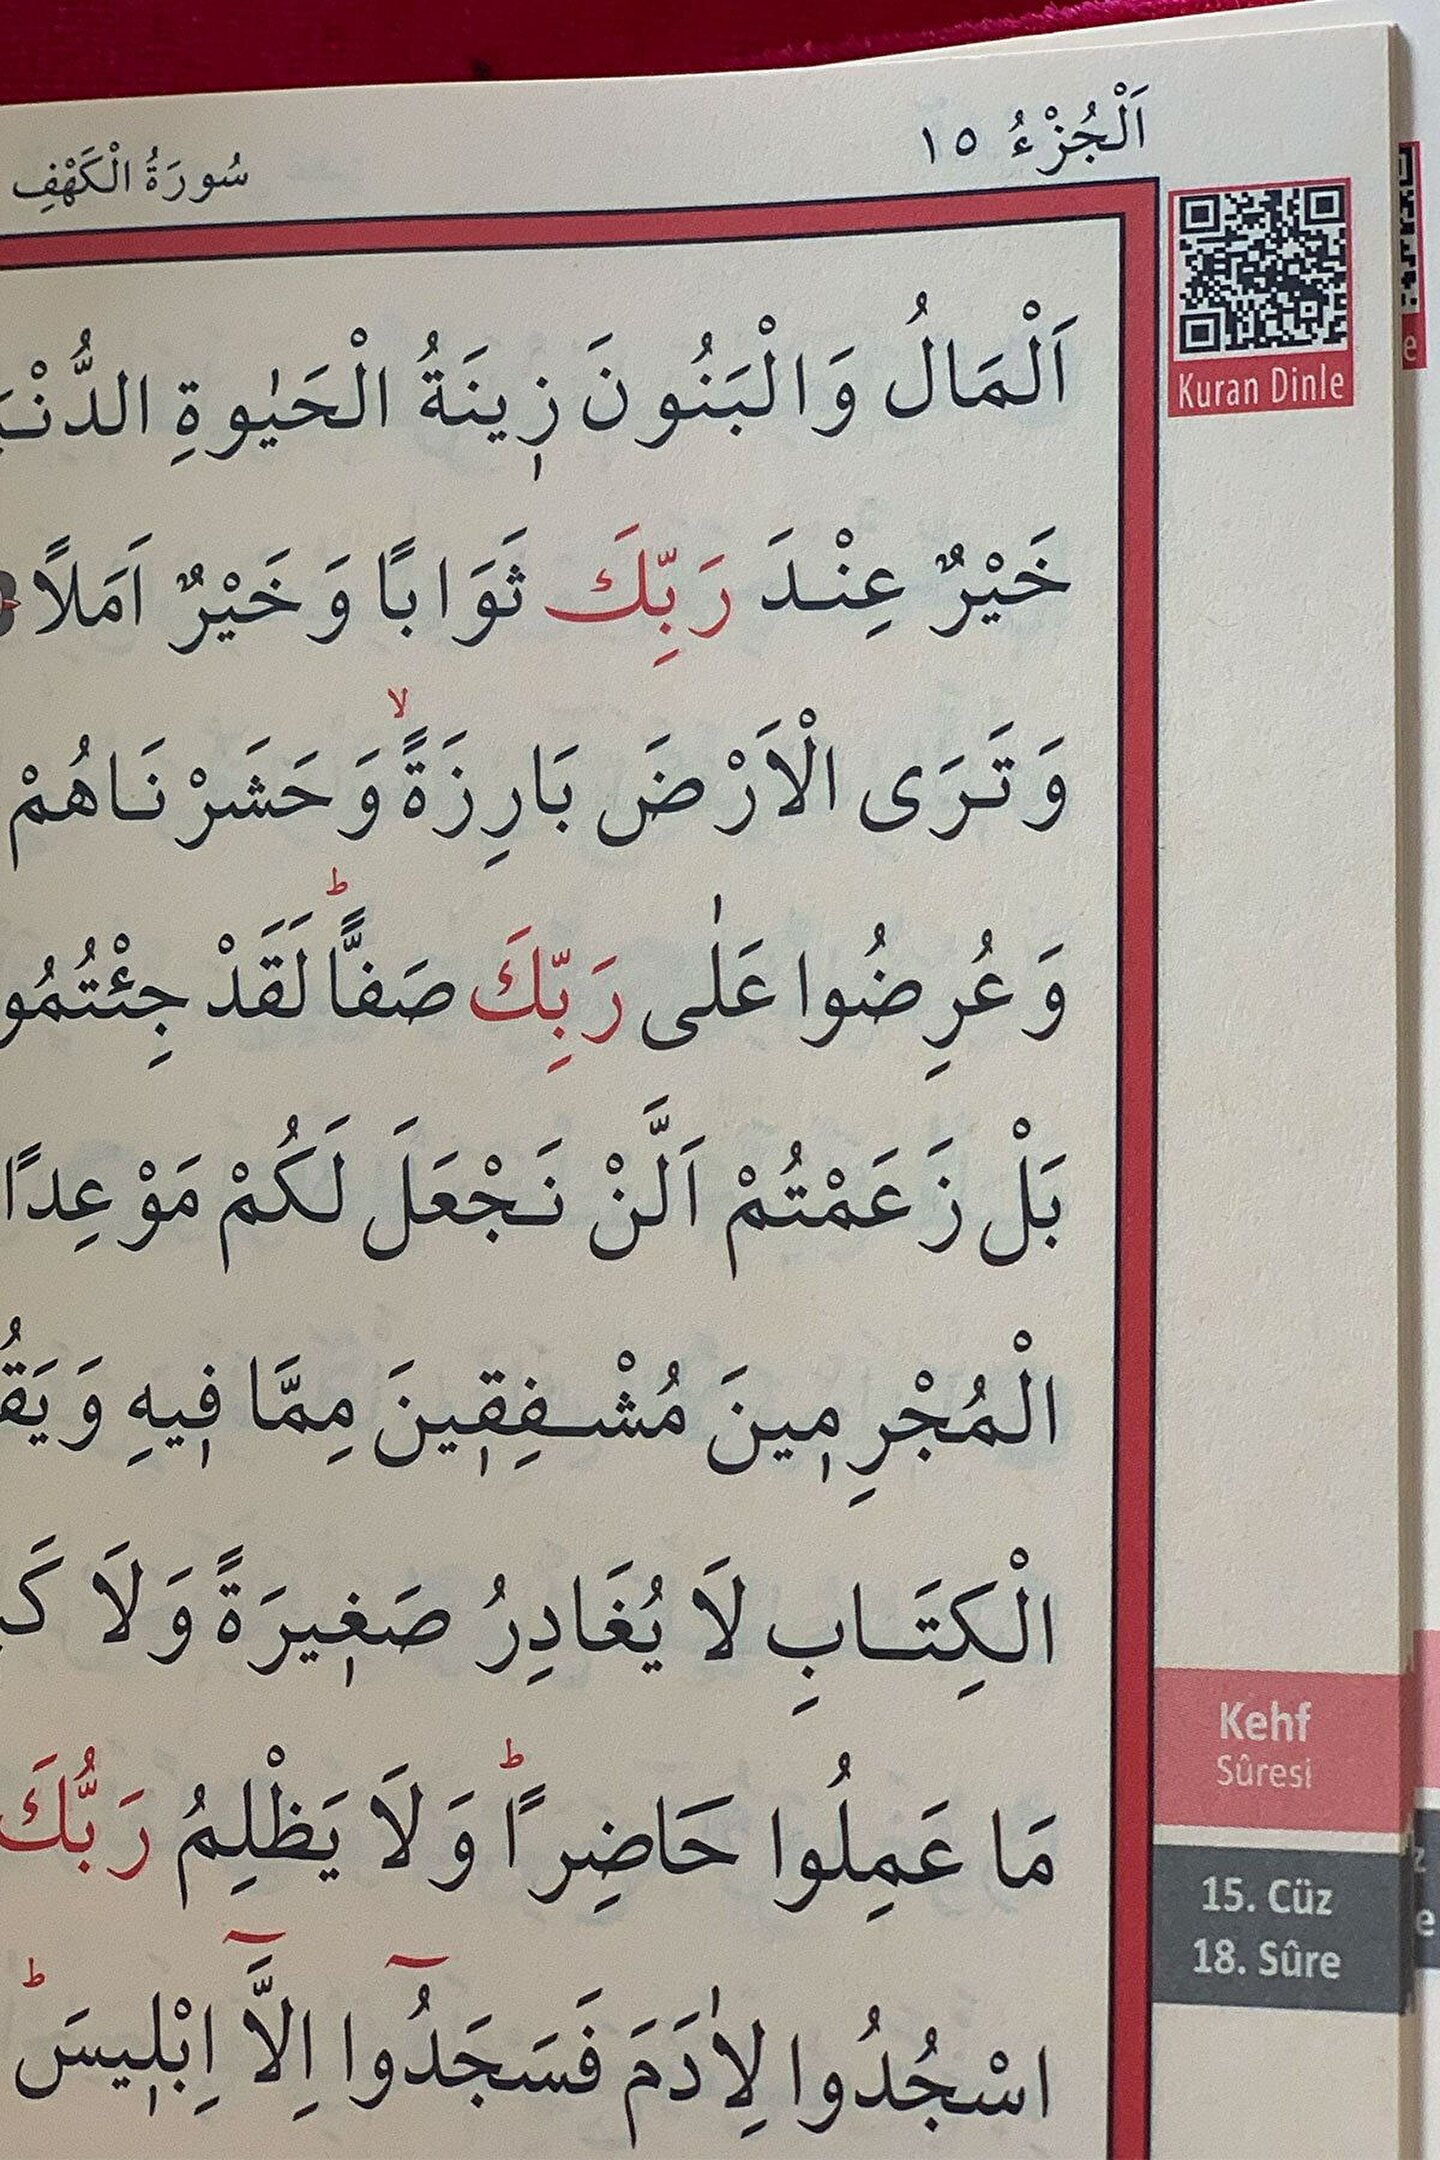 اَلْجُزْءُ ١٥
سُورَةُ الْكَهْفِ
Kuran Dinle
اَلْمَالُ وَالْبَنُونَ زٖينَةُ الْحَيٰوةِ
خَيْرٌ عِنْدَ رَبِّكَ ثَوَابًا وَخَيْرٌ اَمَلًا
وَتَرَى الْاَرْضَ بَارِزَةًۙ وَحَشَرْنَاهُمْ
وَعُرِضُوا عَلٰى رَبِّكَ صَفًّاؕ لَقَدْ
بَلْ زَعَمْتُمْ اَلَّنْ نَجْعَلَ لَكُمْ مَوْعِدًا
الْمُجْرِمٖينَ مُشْفِقٖينَ مِمَّا فٖيهِ
الْكِتَابِ لَا يُغَادِرُ صَغٖيرَةً وَلَا
مَا عَمِلُوا حَاضِرًاؕ وَلَا يَظْلِمُ رَبُّكَ
اسْجُدُوا لِاٰدَمَ فَسَجَدُٓوا اِلَّٓا اِبْلٖيسَؕ
Kehf
Sûresi
15. Cüz
18. Sûre